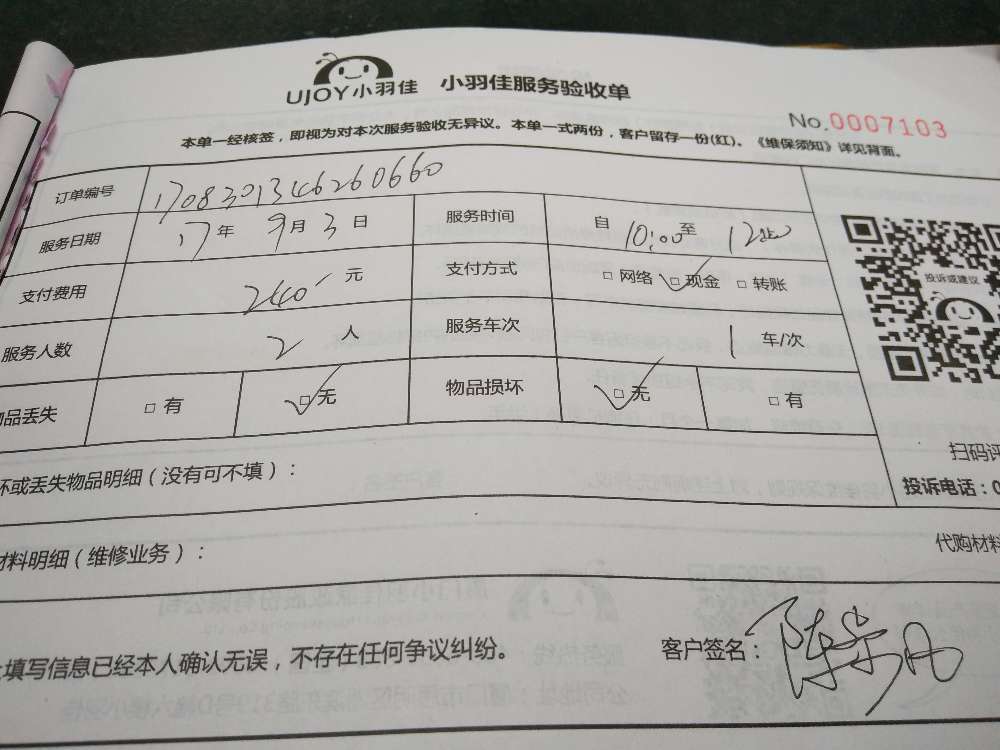 UJOY小羽佳 小羽佳服务验收单
No.0007103
本单一经核签，即视为对本次服务验收无异议。本单一式两份，客户留存一份(红)。《维保须知》详见背面。
订单编号 1708301346260660
服务日期 17年9月3日 服务时间 自10:00至12:00
支付费用 240元 支付方式 □网络 ☑现金 □转账
服务人数 2人 服务车次 1车/次
品丢失 □有 ☑无 物品损坏 ☑无 □有
投诉或建议
扫码评
投诉电话：0
坏或丢失物品明细（没有可不填）：
材料明细（维修业务）： 代购材料
填写信息已经本人确认无误，不存在任何争议纠纷。 客户签名：